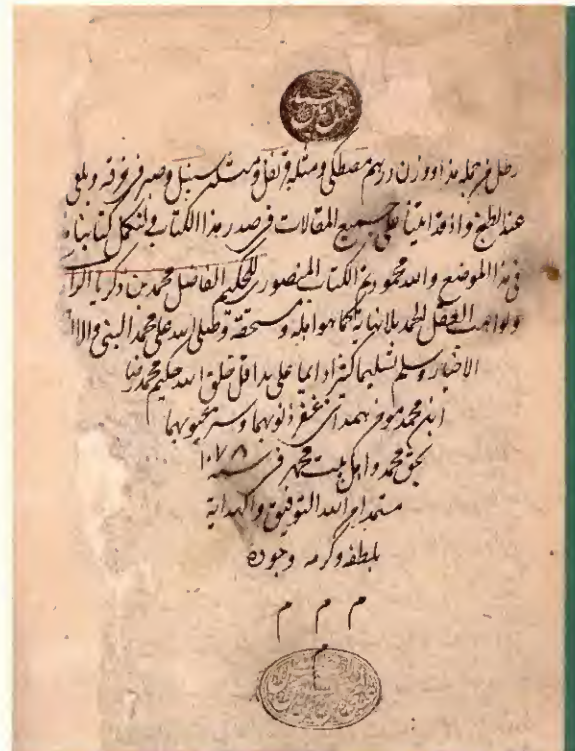 رطل فرجمله هذا ووزن درهم مصطكى ومثله قرنفل ومثله سنبل وصير فى خرقة ويلقى
عند الطبخ واذ قد اتينا على جميع المقالات فى صدر هذا الكتاب فلنكمل كتابنا
فى هذا الموضع والله محمود تم الكتاب المنصورى للحكيم الفاضل محمد بن زكريا
ولواهب العقل الحمد بلانهاية كما هو اهله ومستحقه وصلى الله على محمد النبى واله
الاخيار وسلم تسليما كثيرا دايما على يد اقل خلق الله حكيم محمد رضا
ابن محمد همدانى غفر ذنوبهما وستر عيوبهما
بحق محمد واهل بيت محمد فى سنه ١٠٧٨
مستمدا من الله التوفيق والهداية
بلطفه وكرمه وجوده
م م م